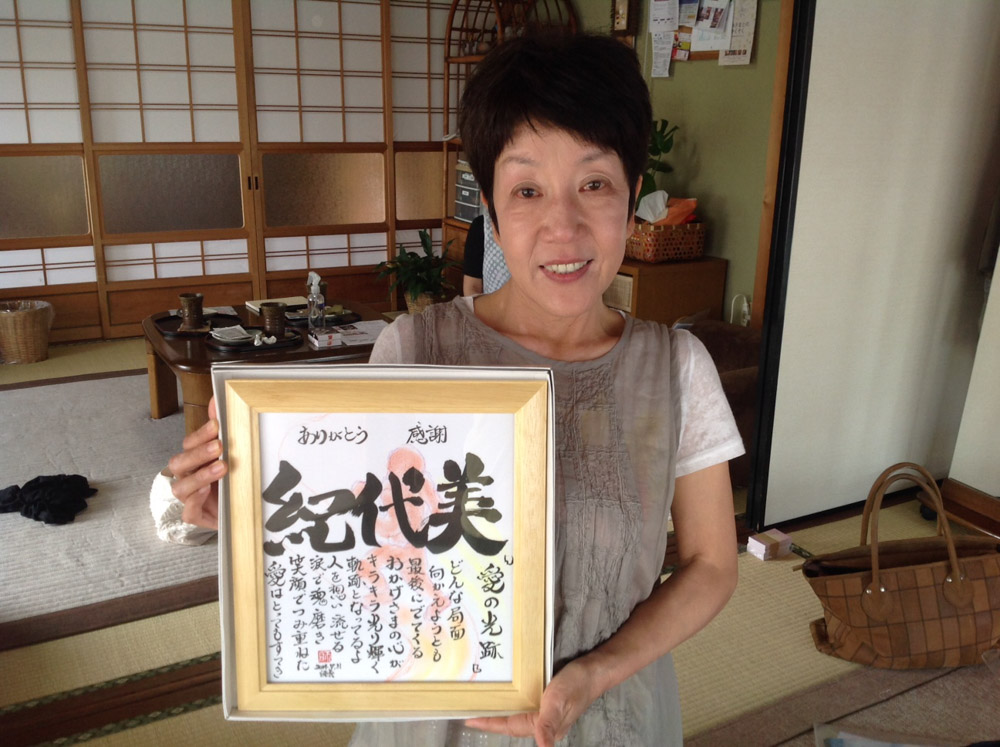 ありがとう 感謝
紀代美
「愛の光跡」
どんな局面
向かえようとも
最後にでてくる
おかげさまの心が
キラキラ光り輝く
軌跡となってるよ
人を想い流せる
涙で魂磨き
笑顔でつみ重ねた
愛はとってもすてき